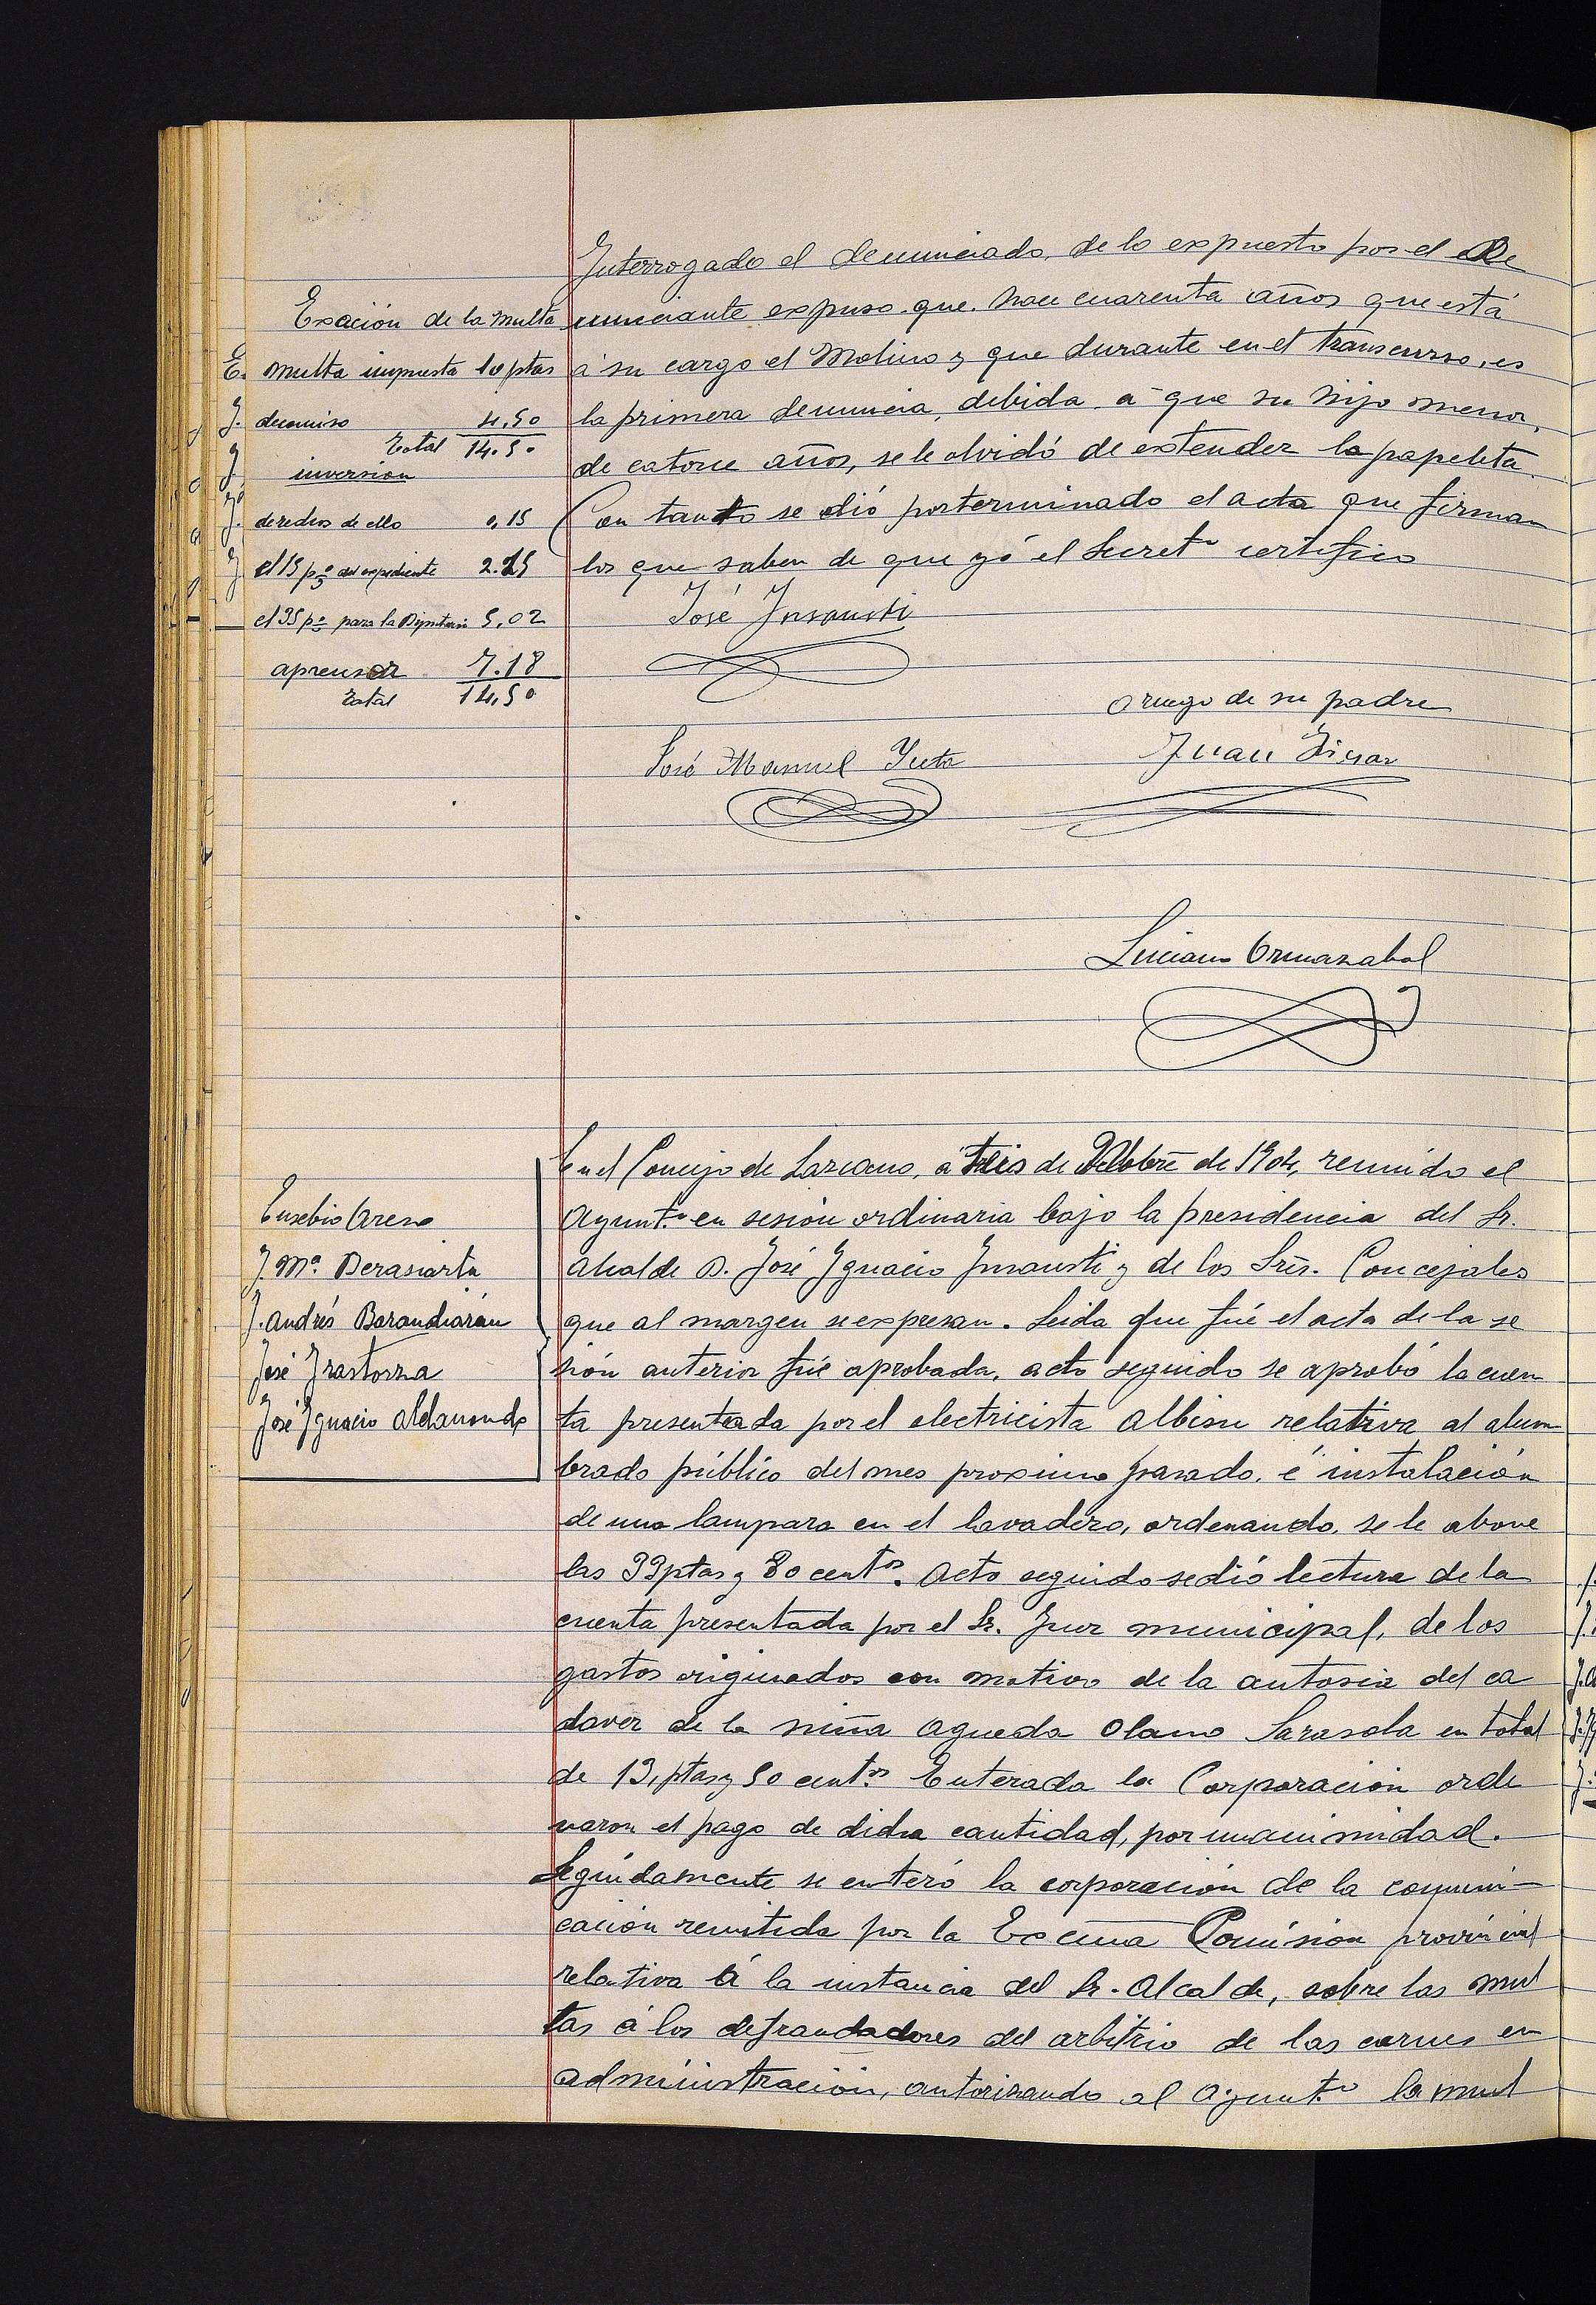 Interrogado el denunciado, de lo expuesto por el De
nunciante expuso que hace cuarenta años que está
á su cargo el Molino y que durante en el transcurso, es
la primera denuncia, debida á que su hijo menor,
de catorce años, se le olvidó de extender la papeleta.
Con tanto se dió por terminado el acta que firman
los que saben de que yó el Secretº certifico
Exación de la multa
multa impuesta 10 ptas
decomiso 4,50
Total 14.50
inversion
derechos de ello 0,15
el 15 pº del expediente 2.15
el 35 pº para la Diputación 5,02
aprensor 7.18
Total 14,50
José Insausti
a ruego de su padre
José Manuel
Juan
Luciano Ormazabal
En el Concejo de Lazcano, á tres de de 1904, reunido el
Ayuntº en sesión ordinaria bajo la presidencia del Sr.
Alcalde D. José Ignacio Insausti y de los Srs. Concejales
que al margen se expresan. Leida que fué el acta de la se
sión anterior fué aprobada, acto seguido se aprobó la cuen
ta presentada por el electricista Albisu relativa al alum
brado público del mes proximo pasado, é instalación
de una lampara en el lavadero, ordenando, se le abone
las 33 ptas y 80 centos. Acto seguido se dió lectura de la
cuenta presentada por el Sr. Juez municipal, de los
gastos originados con motivo de la autosia del ca
daver de la niña Agueda Olano Sarasola en total
de 13, ptas y 50 centos Enterada la Corporación orde
naron el pago de dicha cantidad, por unanimidad.
Seguidamente se enteró la corporación de la comuni-
cación remitida por la Excma Comisión provincial
relativa á la instancia del Sr. Alcalde, sobre las mul
tas á los defraudadores del arbitrio de las carnes en
administración, autorizando al Ayuntº la mul
Eusebio Areso
J. Mª. Berasiarta
J. Andrés Barandiarán
José Irastorza
José Ignacio Aldamondo